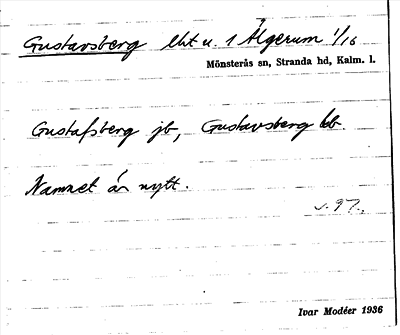 Gustavsberg lht u. 1 Ålgerum 1/16
Mönsterås sn, Stranda hd, Kalm. l.
Gustafsberg jb, Gustavsberg kb.
Namnet är nytt.
s. 97.
Ivar Modéer 1936